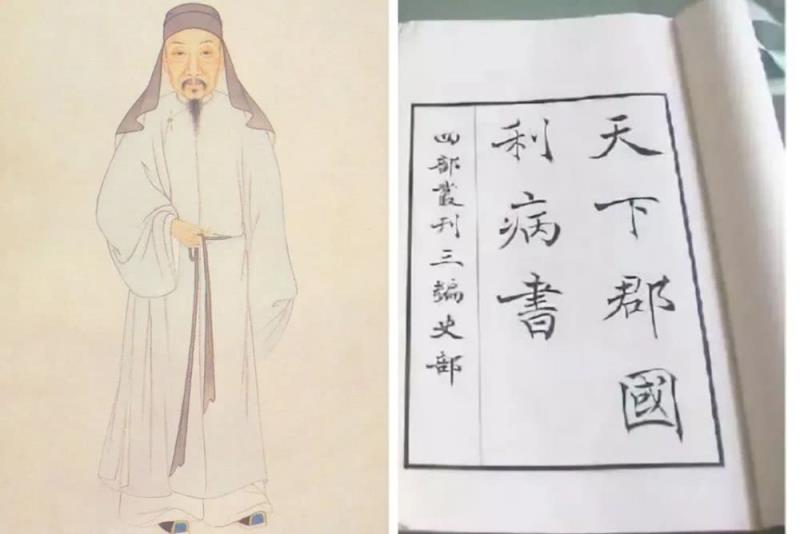 天下郡國
利病書
四部叢刊三編史部